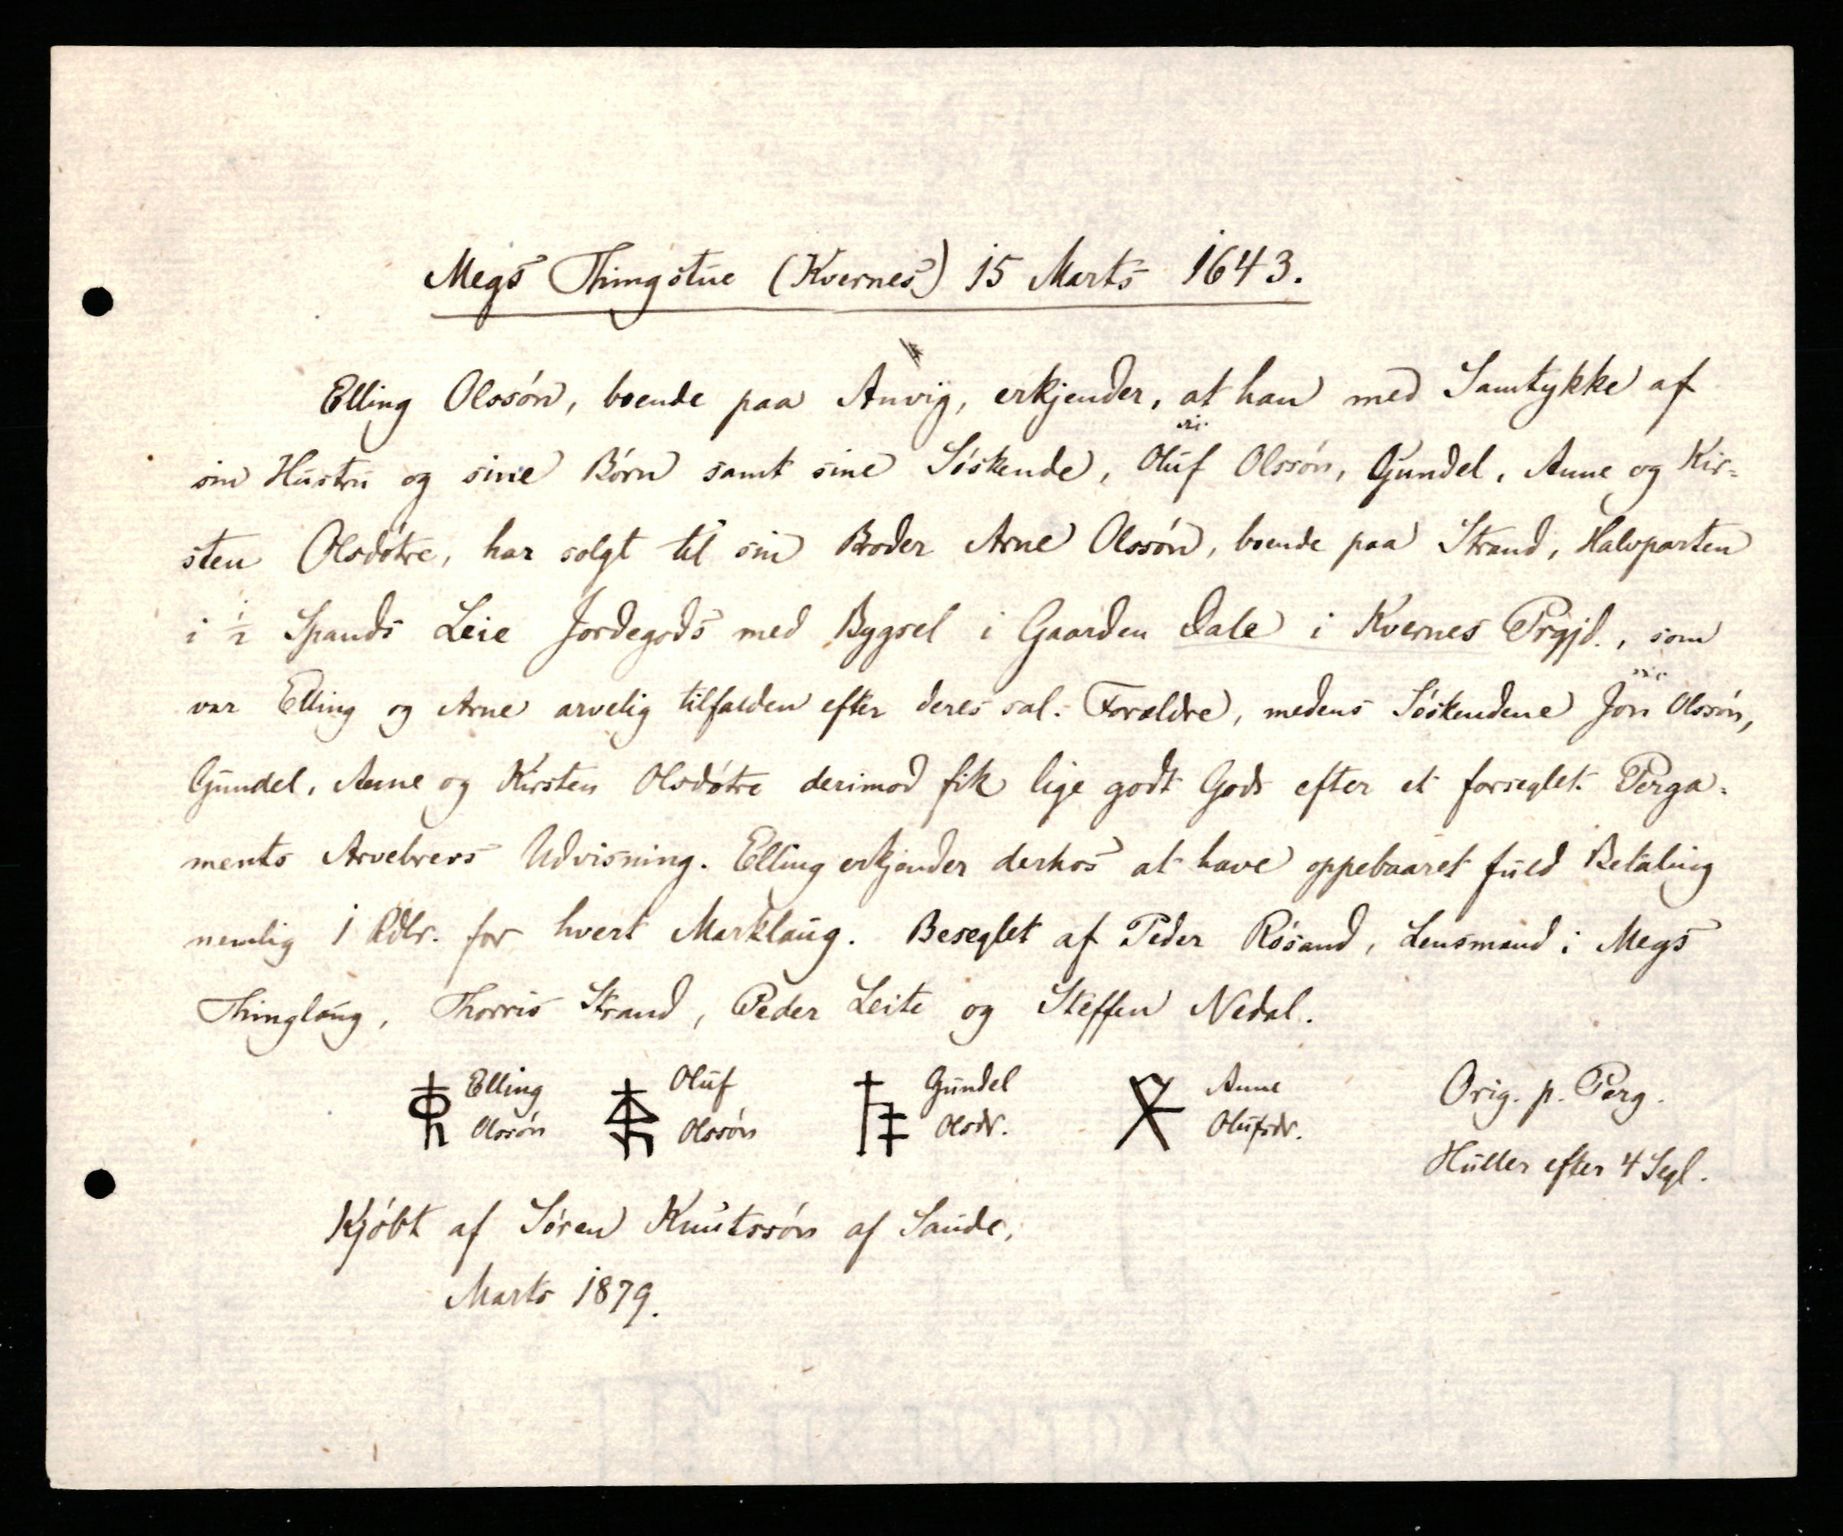 Megs Thingstue (Kvernes) 15 Marts 1643.
Elling Olssön, boende paa Anvig, erkjender, at han med Samtykke af
sin Hustru og sine Börn samt sine Söskende, Oluf Olssön, Gundel, Anne og Kir-
sten Olsdötre, har solgt til sin Broder Arne Olssön, boende paa Strand, Halvparten
i ½ Spands Leie Jordegods med Bygsel i Gaarden Dale i Kvernes Prgjd., som
sic
var Elling og Arne arvelig tilfalden efter deres sal. Forældre, medens Söskendene Jon Olssön,
Gundel, Anne og Kirsten Olsdøtre derimod fik lige godt Gods efter et forseglet Perga-
ments Arvebrevs Udvisning. Elling erkjender derhos at have oppebaaret fuld Betaling
nemlig 1 Rdlr. for hvert Marklaug. Beseglet af Peder Rösand, Lensmand i Megs
Thinglaug, Thorris Strand, Peder Leite og Steffen Nedal.
Elling Olssön
Oluf Olssön
Gundel Olsdr.
Anne Olufsdr.
Orig. p. Perg.
Huller efter 4 Segl.
Kjöbt af Sören Knutssön af Saude,
Marts 1879.